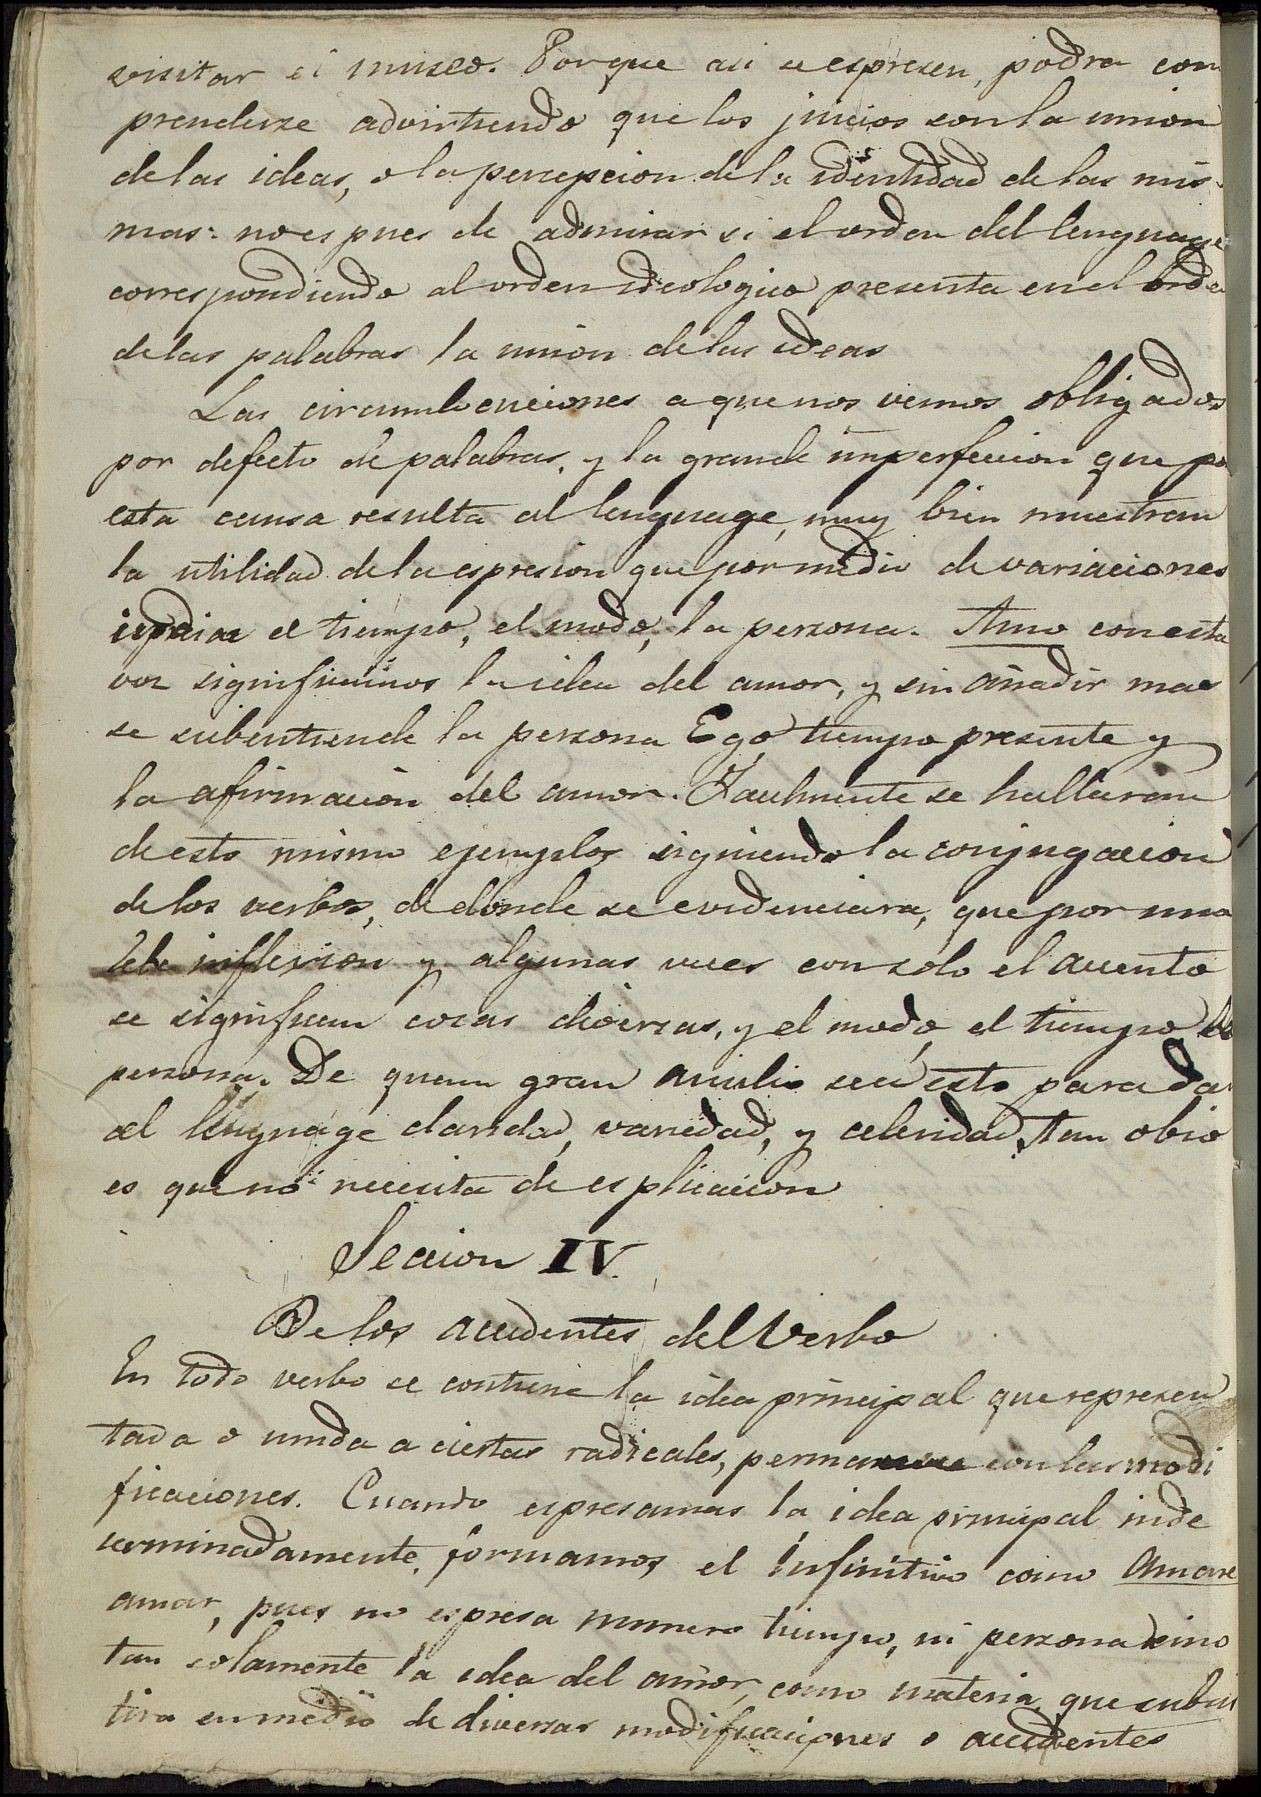 visitar el museo. Porque asi se espresen, podra com
prenderse advirtiendo que los juicios son la union
de las ideas, o la percepcion de la identidad de las mis-
mas: no es pues de admirar si el orden del lenguage
correspondiendo al orden ideologico presenta en el orde
de las palabras la union de las ideas
Las circumlocuciones a que nos vemos obligados
por defecto de palabras, y la grande imperfeccion que po
esta causa resulta al lenguage, muy bien muestran
la utilidad de la espresion que por medio de variaciones
indica el tiempo, el modo, la persona. Amo con esta
voz significamos la idea del amor, y sin añadir mas
se subentiende la persona Ego tiempo presente y
la afirmacion del amor. Facilmente se hallaran
de esto mismo ejemplos siguiendo la conjugacion
de los verbos, de donde se evidenciara, que por una
sola inflexion y algunas veces con solo el acento
se significan cosas diversas, y el modo, el tiempo la
persona. De quan gran ausilio sea esto para da
al lenguage claridad, variedad, y celeridad, tan obio
es que no necesita de esplicacion
Seccion IV.
De los accidentes del Verbo
En todo verbo se contiene la idea principal que represen
tada o unida a ciertas radicales, permanece con las modi
ficaciones. Cuando espresamos la idea principal inde
terminadamente, formamos el Infinitivo como Amare
amar, pues no espresa numero tiempo, ni persona sino
tan solamente la idea del amor, como materia que subsis
tira en medio de diversas modificaciones o accidentes